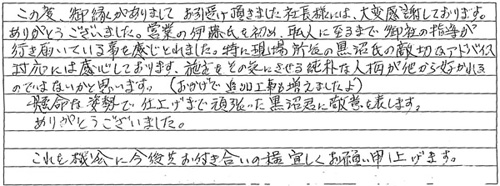 この度、御縁がありまして お引受け頂きました社長様には、大変感謝しております。
ありがとうございました。営業の伊藤氏を初め、職人に至るまで御社の指導が
行き届いている事を感じとれました。特に現場所長の黒沼氏の適切なアドバイス
対応には感心しております。施主をその気にさせる純朴な人柄が他から好かれる
のではないかと思います。(おかげで追加工事も増えましたよ)
懸命な姿勢で仕上げまで頑張った黒沼君に敬意を表します。
ありがとうございました。
これを機会に今後共お付き合いの程宜しくお願い申上げます。